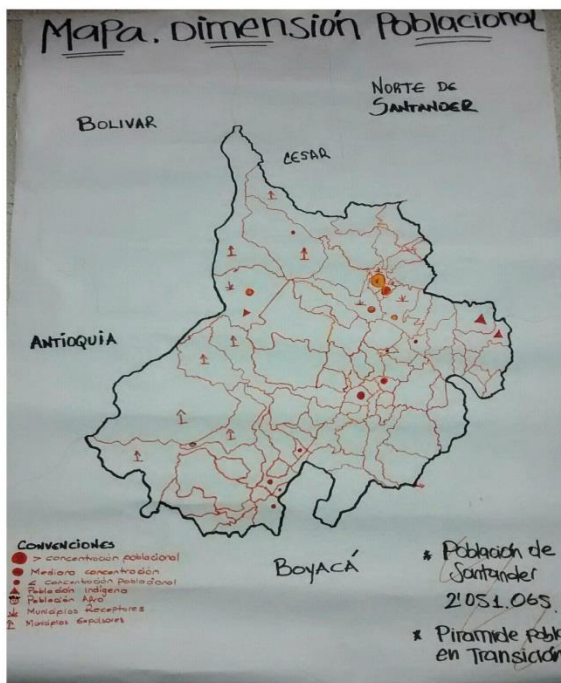 Mapa. Dimensión Poblacional
NORTE DE
SANTANDER
BOLIVAR
CESAR
ANTIOQUIA
BOYACÁ
CONVENCIONES
> concentración poblacional
Mediana concentración
≤ concentración poblacional
Población Indígena
Población Afro
Municipios Receptores
Municipios Expulsores
* Población de
Santander
2'051.065.
* Piramide Pobl
en Transición